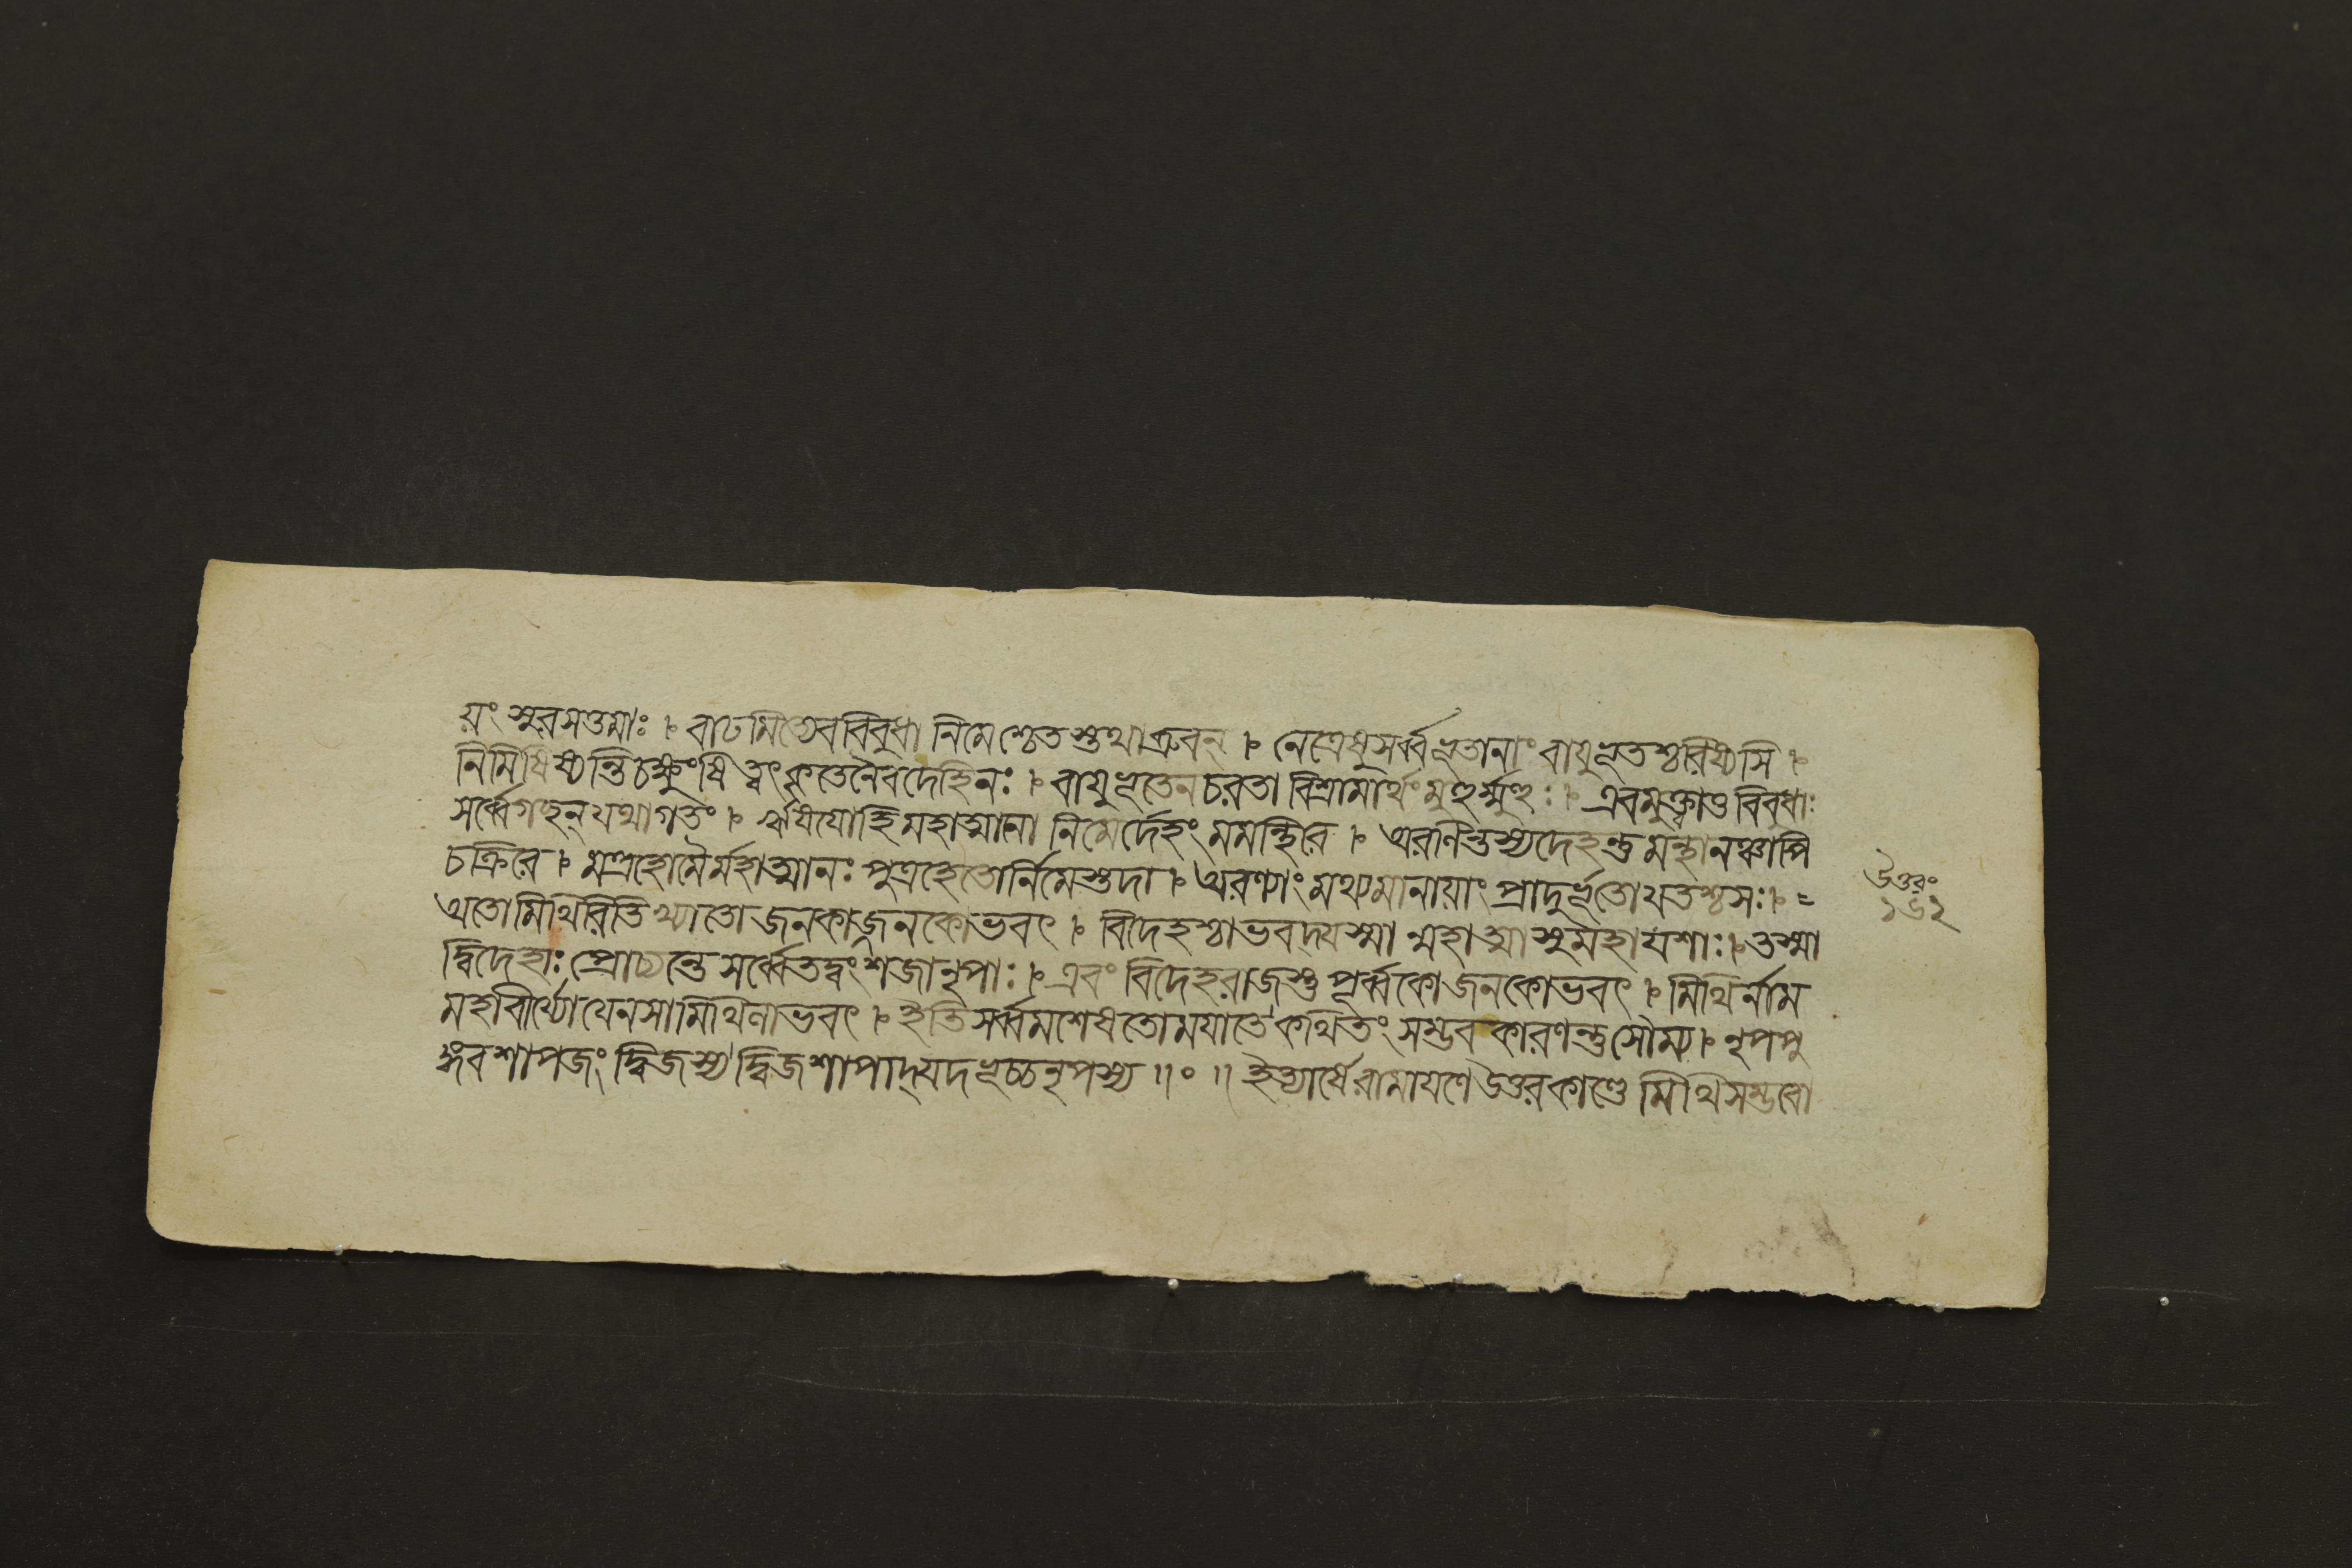 য়ং সুরসত্তমাঃ । বাঢমিত্যেববিবুধা নিমেশ্চেতস্তথাব্রুবন্ । নেত্রেষুসর্ব্বভূতানাং বাযুভূতশ্চরিষ্যসি ।
নিমিষিষ্যন্তিচক্ষুংষি ত্বৎকৃতেনৈবদেহিনঃ । বাযুভূতেনচরতা বিশ্রামার্থংমুহুর্ম্মুহুঃ । এবমুক্ত্বাতুবিবুধাঃ
সর্ব্বেগছন্যথাগতং । ঋষযোহিমহাত্মানো নিমের্দেহংমমন্থিরে । অরণিন্তস্যদেহন্তু মন্থানঞ্চাপি
চক্রিরে । মন্ত্রহোমৈর্মহাত্মানঃ পুত্রহেতোর্নিমেস্তদা । অরণ্যাংমথ্যমানায়াং প্রাদুর্ভূতোযতশ্চসঃ । =
অতোমিথিরিতিখ্যাতো জনকাজনকোভবৎ । বিদেহশ্চাভবদ্যস্মা ন্মহাত্মাসুমহাযশাঃ । তস্মা
দ্বিদেহাঃপ্রোচ্যন্তে সর্ব্বেতদ্বংশজানৃপাঃ । এবং বিদেহরাজস্তু পূর্ব্বকোজনকোভবৎ । মিথির্নাম
মহাবীর্য্যো যেনসামিথিলাভবৎ । ইতিসর্ব্বমশেষতোমযাতে কথিতং সম্ভবকারণন্তুসৌম্য । নৃপপু
ঙ্গবশাপজং দ্বিজস্য দ্বিজশাপাদ্যদভূচ্চনৃপস্য ॥॰॥ ইত্যার্ষেরামাযণে উত্তরকাণ্ডে মিথিসম্ভবো
উত্তরং
১৬২